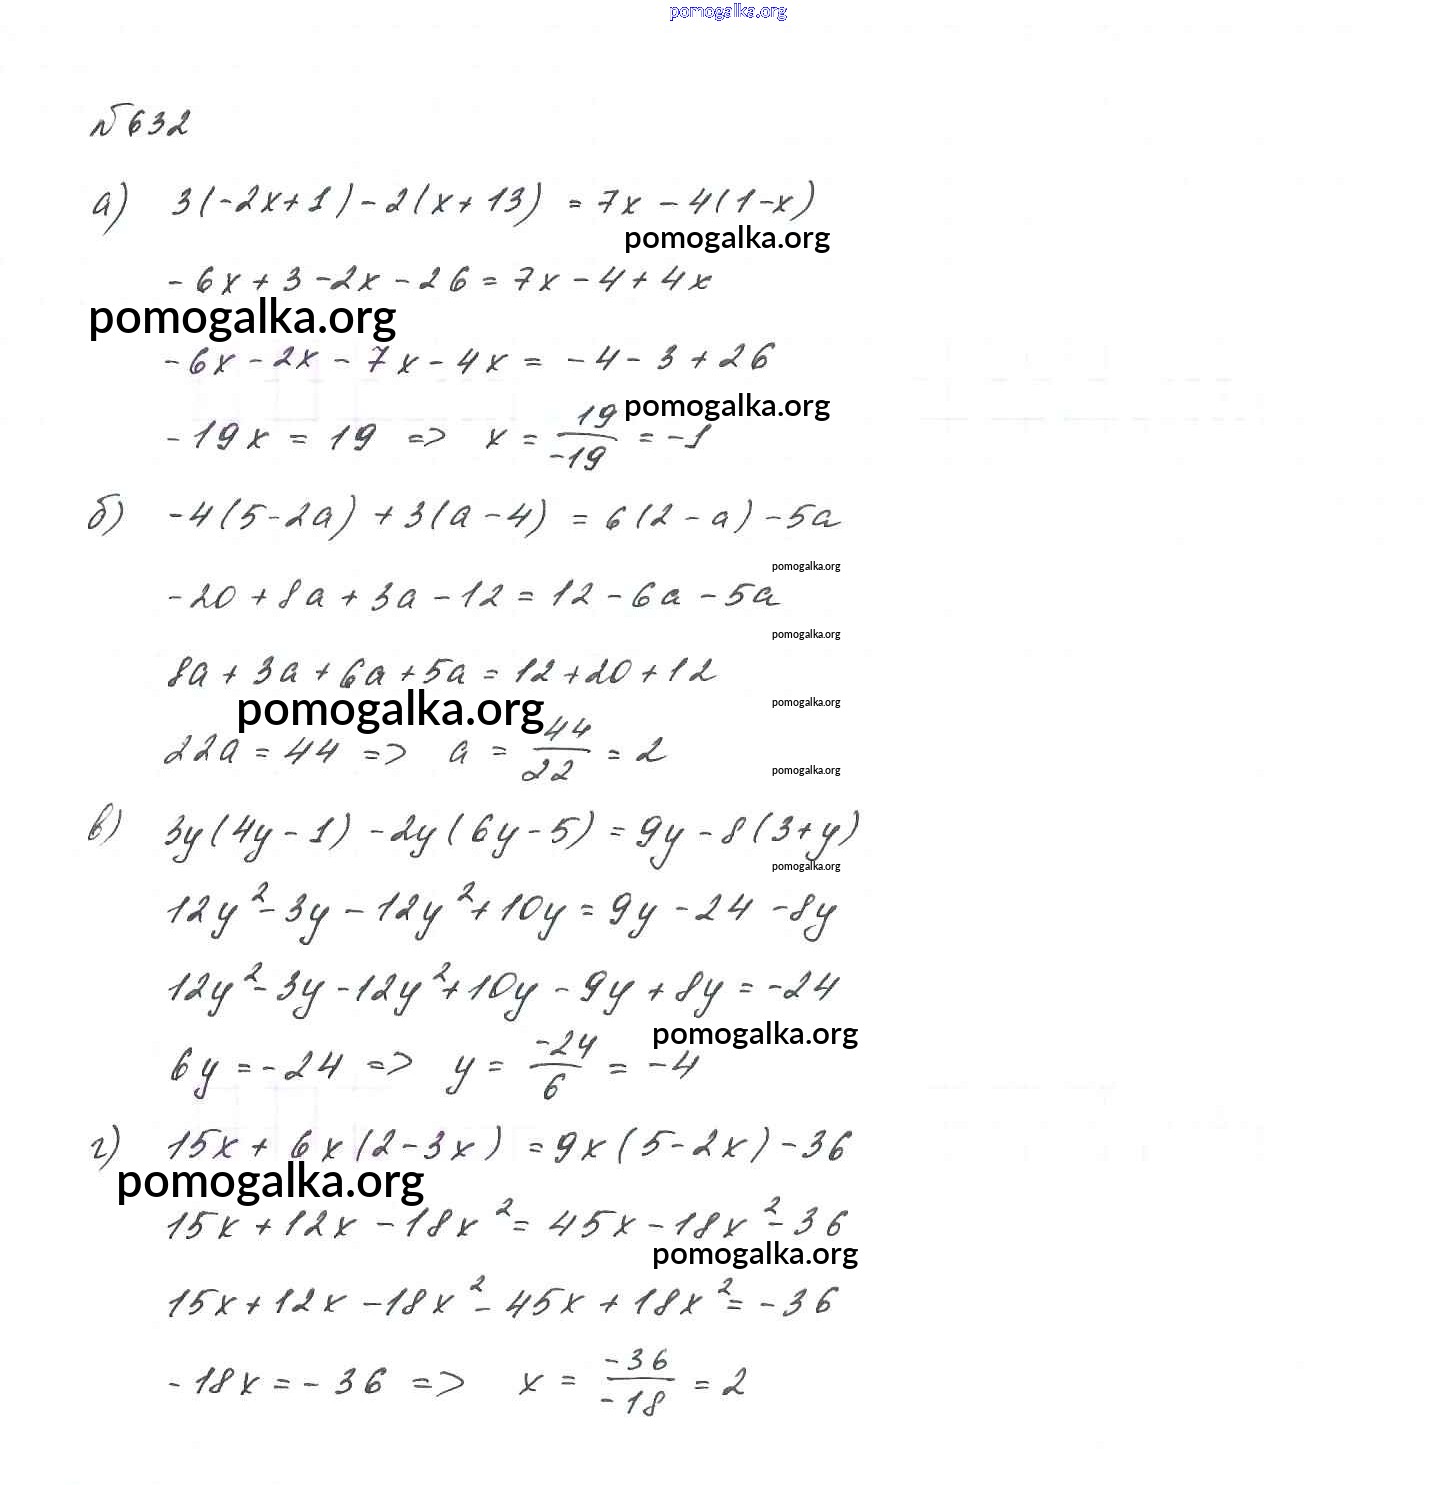 pomogalka.org
№632
а) 3(-2x+1)-2(x+13) = 7x-4(1-x)
pomogalka.org
-6x+3-2x-26=7x-4+4x
pomogalka.org
-6x-2x-7x-4x = -4-3+26
pomogalka.org
-19x = 19 => x = 19/-19 = -1
б) -4(5-2a)+3(a-4) = 6(2-a)-5a
pomogalka.org
-20+8a+3a-12=12-6a-5a
pomogalka.org
8a+3a+6a+5a=12+20+12
pomogalka.org
pomogalka.org
22a=44 => a = 44/22 = 2
pomogalka.org
в) 3y(4y-1)-2y(6y-5)=9y-8(3+y)
pomogalka.org
12y²-3y-12y²+10y=9y-24-8y
12y²-3y-12y²+10y-9y+8y=-24
pomogalka.org
6y=-24 => y = -24/6 = -4
г) 15x+6x(2-3x) =9x(5-2x)-36
pomogalka.org
15x+12x-18x²=45x-18x²-36
pomogalka.org
15x+12x-18x²-45x+18x²=-36
-18x=-36 => x = -36/-18 = 2